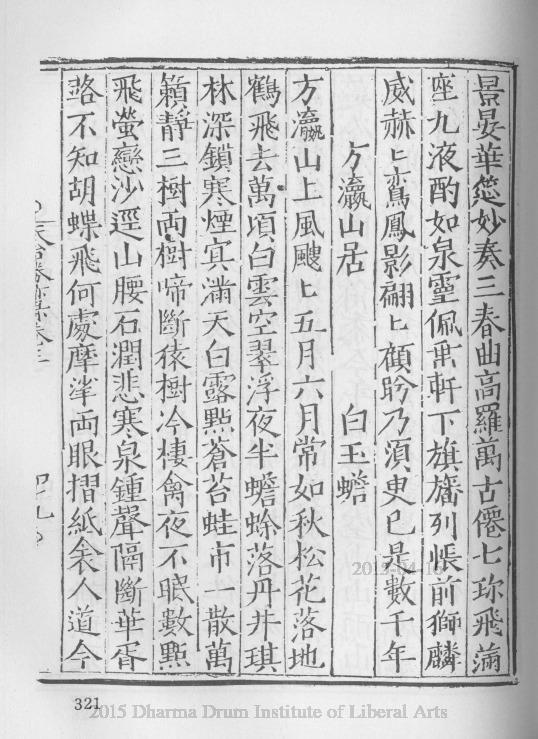 景晏華筵妙奏三春曲高羅萬古僊七珎飛滿
座九液酌如泉靈佩垂軒下旗旛列帳前獅麟
威赫〻鸞鳳影翩〻顧眄乃須臾已是數千年
方瀛山居 白玉蟾
方瀛山上風颼〻五月六月常如秋松花落地
鶴飛去萬頃白雲空翠浮夜半蟾蜍落丹井琪
林深鎖寒煙㝠滿天白露點蒼苔蛙市一散萬
籟靜三樹兩樹啼斷猿樹冷棲禽夜不眠數點
飛螢戀沙逕山腰石澗悲寒泉鍾聲隔斷華胥
路不知胡蝶飛何處摩挲兩眼摺紙衾人道今
天台勝蹟卷三
四九
321
2015-04-16
2015 Dharma Drum Institute of Liberal Arts